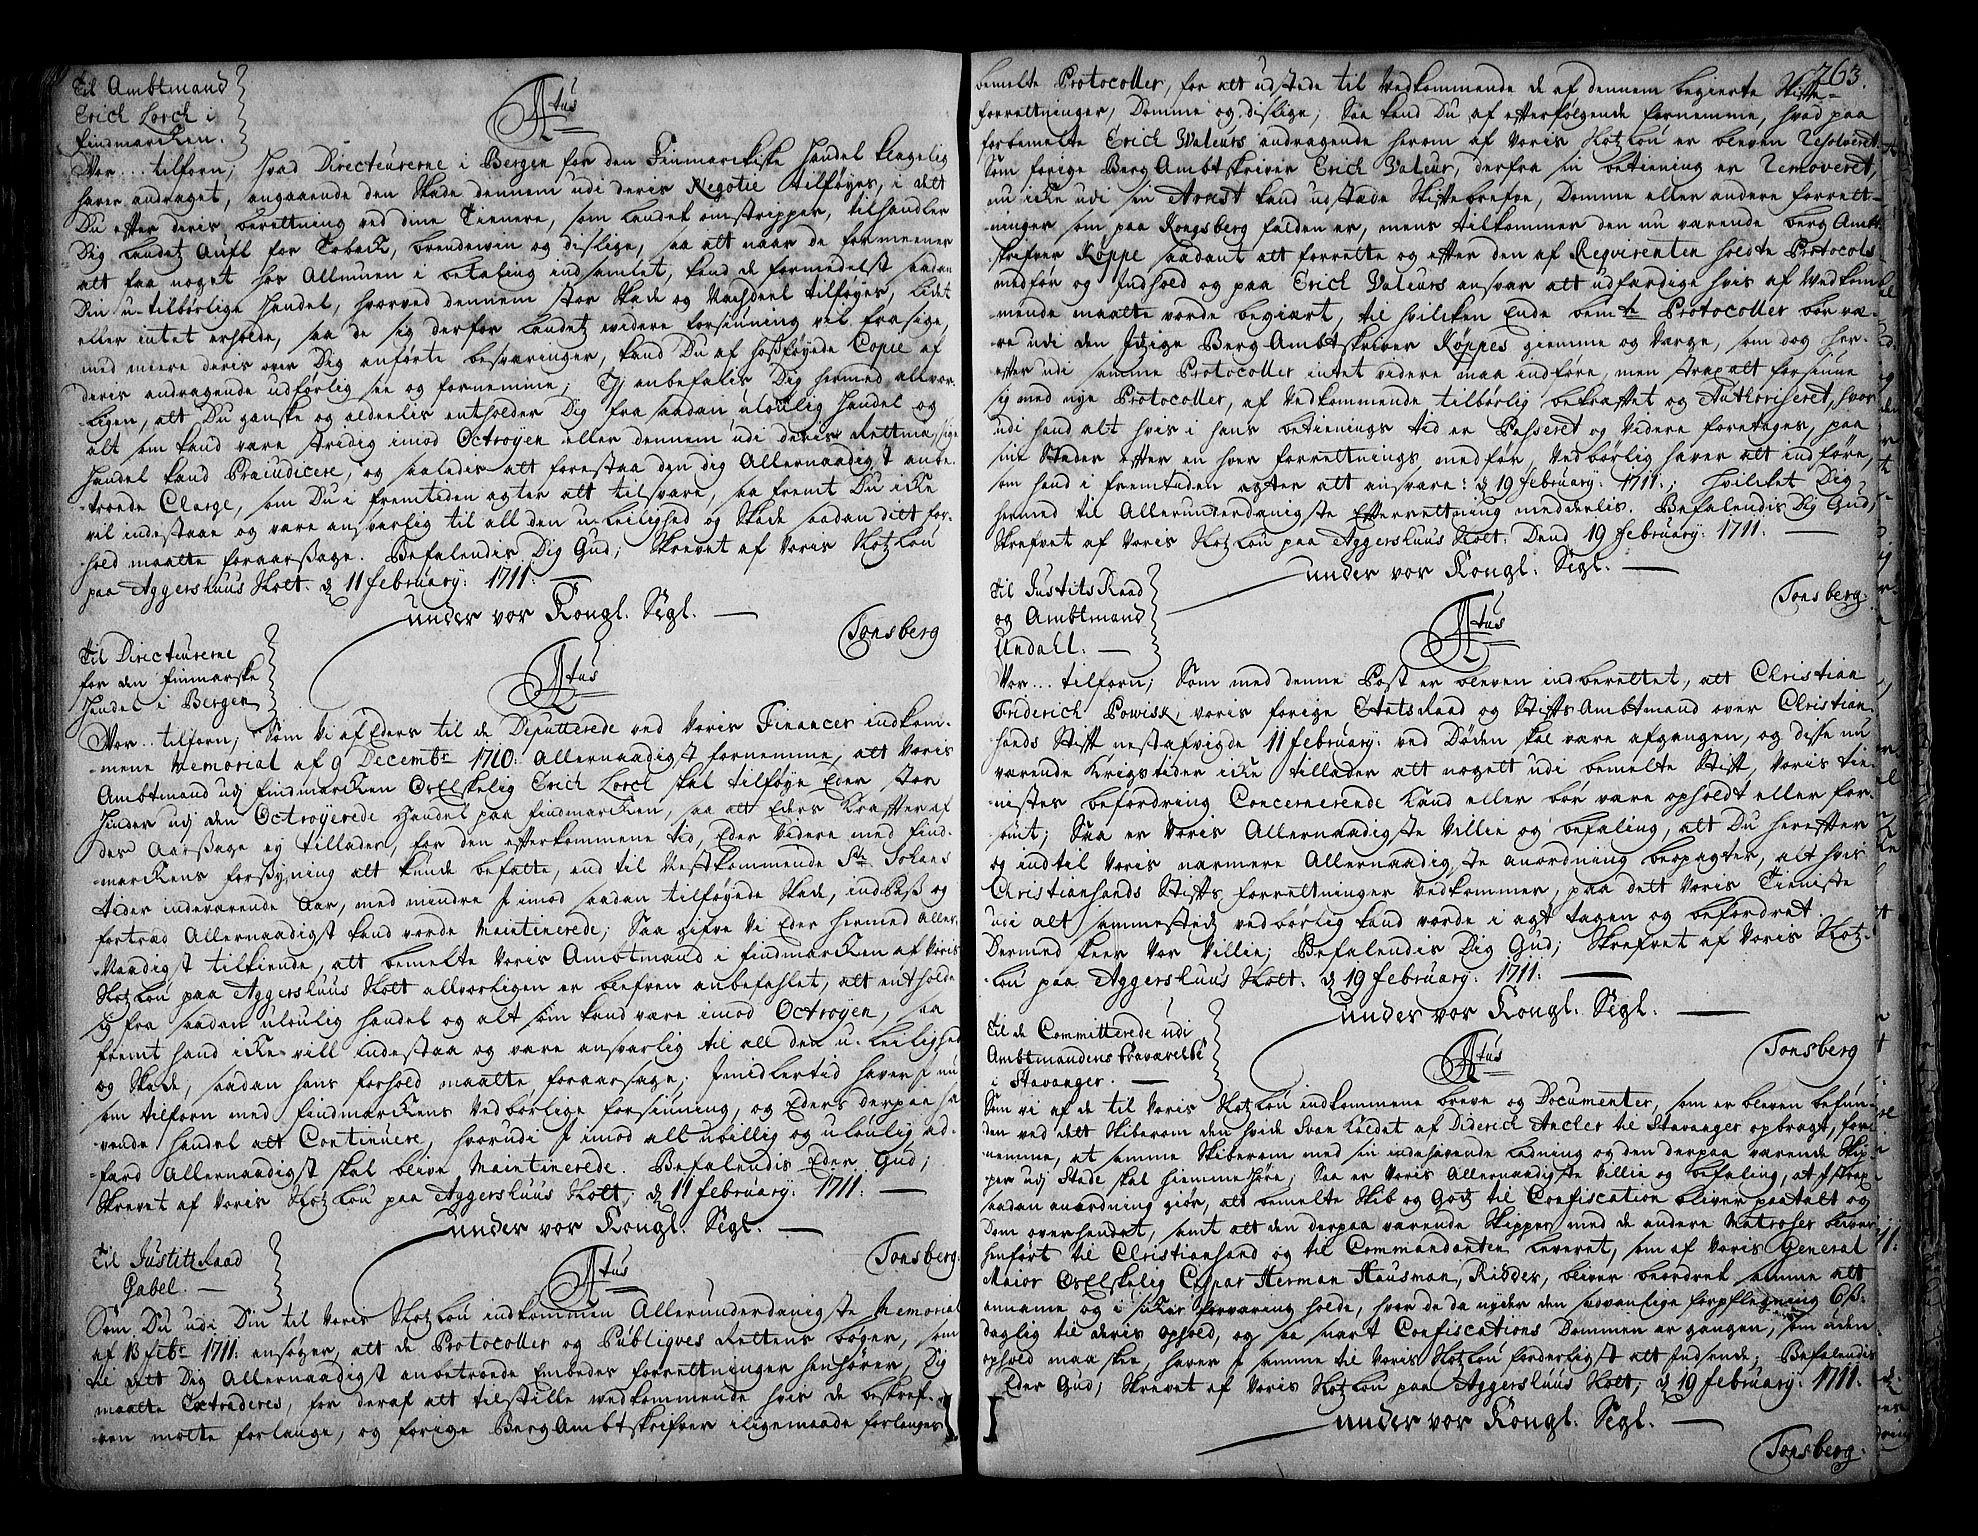 Til Ambtmand
Erich Lorch i
Findmarcken.
Atus
Vor... tilforn; Hvad Directeurerne i Bergen for den Finmarckiske Handel klagelig
haver andraget, angaaende den Skade dennem udi deris Negotie tilføyes, i dett
Du efter deris beretning ved dine Tienere, som Landet omstripper, tilhandler
Dig Landets Aufl for Toback, brendevin og dislige, saa att naar de formeener
att faa noget hos Allmuen i betaling indsamlet, kand de formedelst saadan
Din u-tilbørlige Handel, hvorved dennem stor Skade og Nachdeel tilføyes, lidet
eller intet erholde, saa de sig derfor Landets videre forsiuning vil frasige,
med meere deris over Dig anførte besværinger, kand Du af hosføyede Copie af
deris andragende udførlig see og fornemme; Thj anbefalis Dig hermed alvor-
ligen, att Du ganske og aldeelis entholder Dig fra saadan ulovlig Handel og
alt som kand være stridig imod Octroyen eller dennem udi deris Rettmæssige
Handel kand Præiudicere, og saaledis att forestaa den dig Allernaadigst anbe-
troede Charge, som Du i fremtiden agter att tilsvare, saa fremt Du icke
vil indestaae og være ansvarlig til all den u-leilighed og Skade saadan ditt for-
hold maatte foraarsage. Befalendis Dig Gud; Skrevet af Voris Slotzlou
paa Aggershuus Slott. d 11 february: 1711:
under vor Kongl. Segl.
Tonsberg
Til Directeurerne
for den Finmarske
Handel i Bergen
Atus
Vor... tilforn; Som Vi af Eders til de Deputterede ved Voris Financer indkom-
mene Memorial af 9 Decembr 1710: Allernaadigst fornemme, att Voris
Ambtmand udj Findmarcken OsElskelig Erich Lorch skal tilføye Eder stor
Hinder udj den Octroyerede Handel paa Findmarcken, saa att Eders Kræfter af
den Aarsage ey tillader, for den efterkommene tid, Eder videre med Find-
marckens forsyning att kunde befatte, end til Nestkommende St: Johans
tider indeværende Aar, med mindre I imod saadan tilføyede Skade, indpass og
fortræd Allernaadigst kand vorde Maintinerede; Saa gifve Vi Eder hermed Aller-
naadigst tilkiende, att bemelte Voris Ambtmand i Findmarcken af Voris
Slotzlou paa Aggershuus Slott allvorligen er blefven anbefahlet, att entholde
sig fra saadan ulovlig handel og alt som kand være imod Octroyen, saa
fremt hand icke vill Indestaa og være ansvarlig til all den u-leilighed
og Skade, saadan hans forhold maatte foraarsage; Imidlertid haver I nu
som tilforn med Findmarckens Vedbørlige forsiuning, og Eders derpaa ha-
vende Handel att Continuere, hvorudi I imod all ubillig og ulovlig ad-
færd Allernaadigst skal blive Maintinerede. Befalendis Eder Gud;
Skrevet af Voris Slotzlou paa Aggershuus Slott, d 11 february: 1711:
under vor Kongl. Segl.
Tonsberg
Til Justitz Raad
Gabel.
Atus
Som Du udi Din til Voris Slotzlou indkommen Allerunderdanigste Memorial
af 13 febr: 1711: ansøger, att de Protocoller og Publiqves Rettens bøger, som
til dett Dig Allernaadigst anbetroede Embedes forrettninger henhører, Dig
maatte Extraderes, for deraf att tilstille vedkommende hvis de beskref-
ven motte forlange, og forige BergAmbtskrifver iligemaade forlanger
263.
bemelte Protocoller, for att udstede til Vedkommende de af dennem begierte Skifte-
forrettninger, Domme og dislige; Saa kand Du af efterfølgende fornemme, hvad paa
forbemelte Erich Valeurs andragende herom af Voris Slotzlou er bleven Resolveret
Som forige BergAmbtskriver Erich Valeur, derfra sin betiening er Removeret,
nu icke udi sin Arrest kand udstæde Skiftebrefve, Domme eller andere forrett-
ninger som paa Kongsberg falden er, mens tilkommer den nu værende berg Ambt-
skrifver Køppe saadant att forrette og efter den af Reqvirenten holdte Protocols
medfør og Indhold og paa Erich Valeurs ansvar att udfærdige hvis af Vedkom-
mende maatte vorde begiært, til hvilcken Ende bemte Protocoller bør væ-
re udi den Itzige Berg Ambtskriver Køppes giemme og Værge, som dog her-
efter udi samme Protocoller intet videre maa indføre, men strax att forsiune
sig med nye Protocoller, af Vedkommende tilbørlig bekræftet og Authoriseret, hvor
udi hand alt hvis i hans betienings tid er Passeret og Videre foretages, paa
sine Stæder efter en hver forrettnings medfør, Vedbørlig haver att indføre,
som hand i fremtiden agter att ansvare: d 19 february: 1711:; Hvilcket Dig
hermed til Allerunderdanigste Efterrettning meddeelis. Befalendis Dig Gud;
Skrefvet af Voris Slotzlou paa Aggershuus Slott. Dend 19 february: 1711:
under vor Kongl. Segl.
Tonsberg.
Til Justits Raad
og Ambtmand
Undall.
Atus
Vor... tilforn; Som med denne Post er bleven indberettet, att Christian
Friderich Powisk, voris forige Etats Raad og Stifts Ambtmand over Christian-
sands Stift nestafvigde 11 february: ved Døden skal være afgangen, og disse nu
værende Krigstider icke tillader att nogett udi bemelte Stift, Voris tie-
nistes befordring Concernerende kand eller bør være opholdt eller for-
sømt; Saa er Voris Allernaadigste Villie og befaling, att Du herefter
og indtil Voris nærmere Allernaadigste anordning beopagter, alt hvis
Christiansands Stifts forrettninger vedkommer, paa dett Voris Tieniste
udi alt sammesteds vedbørlig kand vorde i agt tagen og befordret.
Dermed skeer Vor Villie; Befalendis Dig Gud; Skrefvet af Voris Slotz-
lou paa Aggershuus Slott. d 19 february: 1711:
under vor Kongl. Segl.
Tonsberg
Til de Committerede udi
Ambtmandens fraværelse
i Stavanger.
Atus
Som vi af de til Voris Slotzlou indkommene breve og Documenter, som er bleven befun-
den ved dett Skiberom den hvide Svan kaldet af Diderich Ancker til Stavanger opbragt, for-
nemme, at samme Skiberom med sin indehavende Ladning og den derpaa værende Skip-
per udj Stade skal hiemmehøre; Saa er Voris Allernaadigste Villie og befaling, at I strax
saadan anordning giør, att bemelte Skib og Gotz til Confiscation bliver paatalt og
Dom overhendet, samt att den derpaa værende Skipper med de andere Matroser bliver
henført til Christiansand og til Commandanten leveret, som af Voris General
Maior OsElskelig Caspar Herman Hausman, Ridder, bliver beordret samme att
annamme og i sicker forvaring holde, hvor de da nyder den sædvanlige forpflegning 6ß:
daglig til deris ophold, og saa snart Confiscations Dommen er gangen, som uden
ophold maa skee, haver I samme til Voris Slotzlou forderligst att Indsende; Befalendis
Eder Gud; Skrevet af Voris Slotzlou paa Aggershuus Slott, d 19 february: 1711:
under vor Kongl. Segl.
Tonsberg.